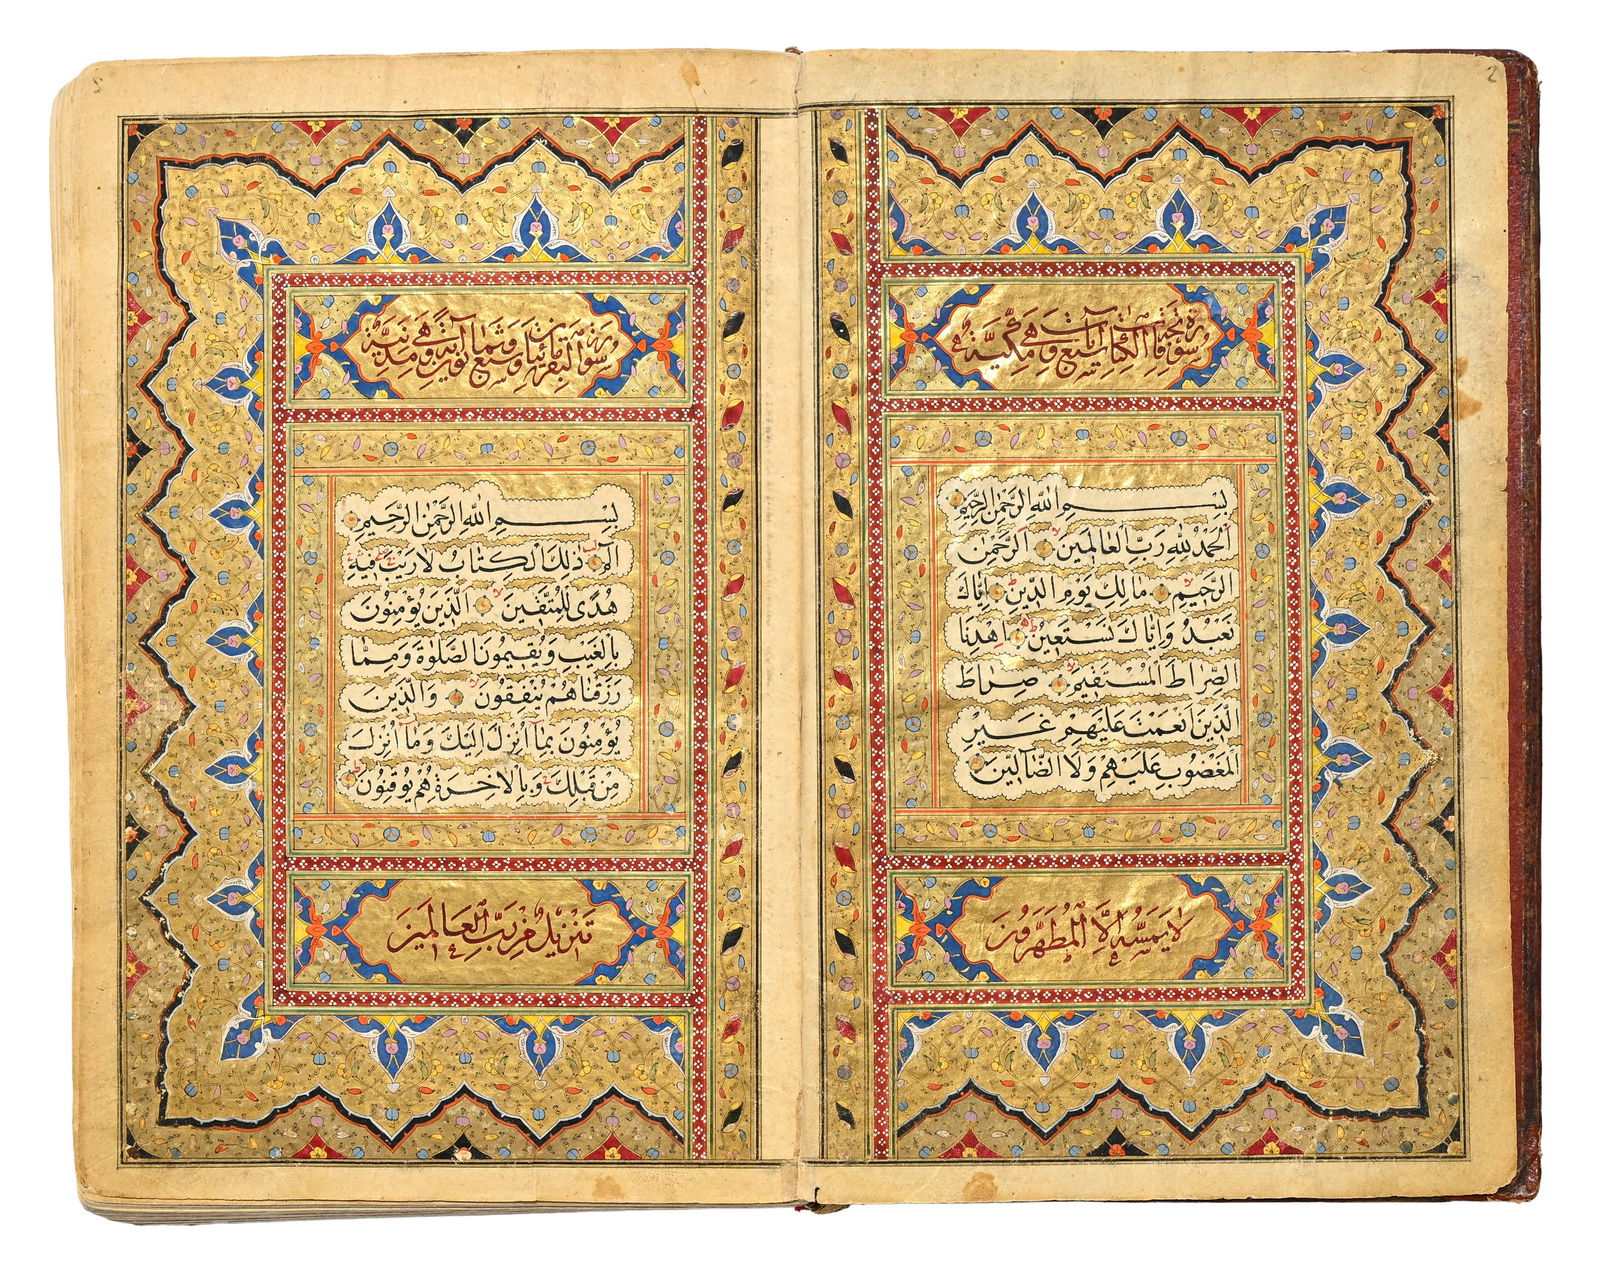 2
سورة فاتحة الكتاب سبع آيات وهي مكية
بِسْمِ اللهِ الرَّحْمٰنِ الرَّحِيمِ
اَلْحَمْدُ لِلّٰهِ رَبِّ الْعَالَمِينَ اَلرَّحْمٰنِ
الرَّحِيمِ مَالِكِ يَوْمِ الدِّينِ اِيَّاكَ
نَعْبُدُ وَاِيَّاكَ نَسْتَعِينُ اِهْدِنَا
الصِّرَاطَ الْمُسْتَقِيمَ صِرَاطَ
الَّذِينَ اَنْعَمْتَ عَلَيْهِمْ غَيْرِ
الْمَغْضُوبِ عَلَيْهِمْ وَلَا الضَّالِّينَ
لَا يَمَسُّهُ اِلَّا الْمُطَهَّرُونَ
سورة البقرة مائتان وثمانون وسبع آية وهي مدنية
بِسْمِ اللهِ الرَّحْمٰنِ الرَّحِيمِ
الٓمٓ ذٰلِكَ الْكِتَابُ لَا رَيْبَ فِيهِ
هُدًى لِلْمُتَّقِينَ اَلَّذِينَ يُؤْمِنُونَ
بِالْغَيْبِ وَيُقِيمُونَ الصَّلٰوةَ وَمِمَّا
رَزَقْنَاهُمْ يُنْفِقُونَ وَالَّذِينَ
يُؤْمِنُونَ بِمَا اُنْزِلَ اِلَيْكَ وَمَا اُنْزِلَ
مِنْ قَبْلِكَ وَبِالْاٰخِرَةِ هُمْ يُوقِنُونَ
تَنْزِيلٌ مِنْ رَبِّ الْعَالَمِينَ